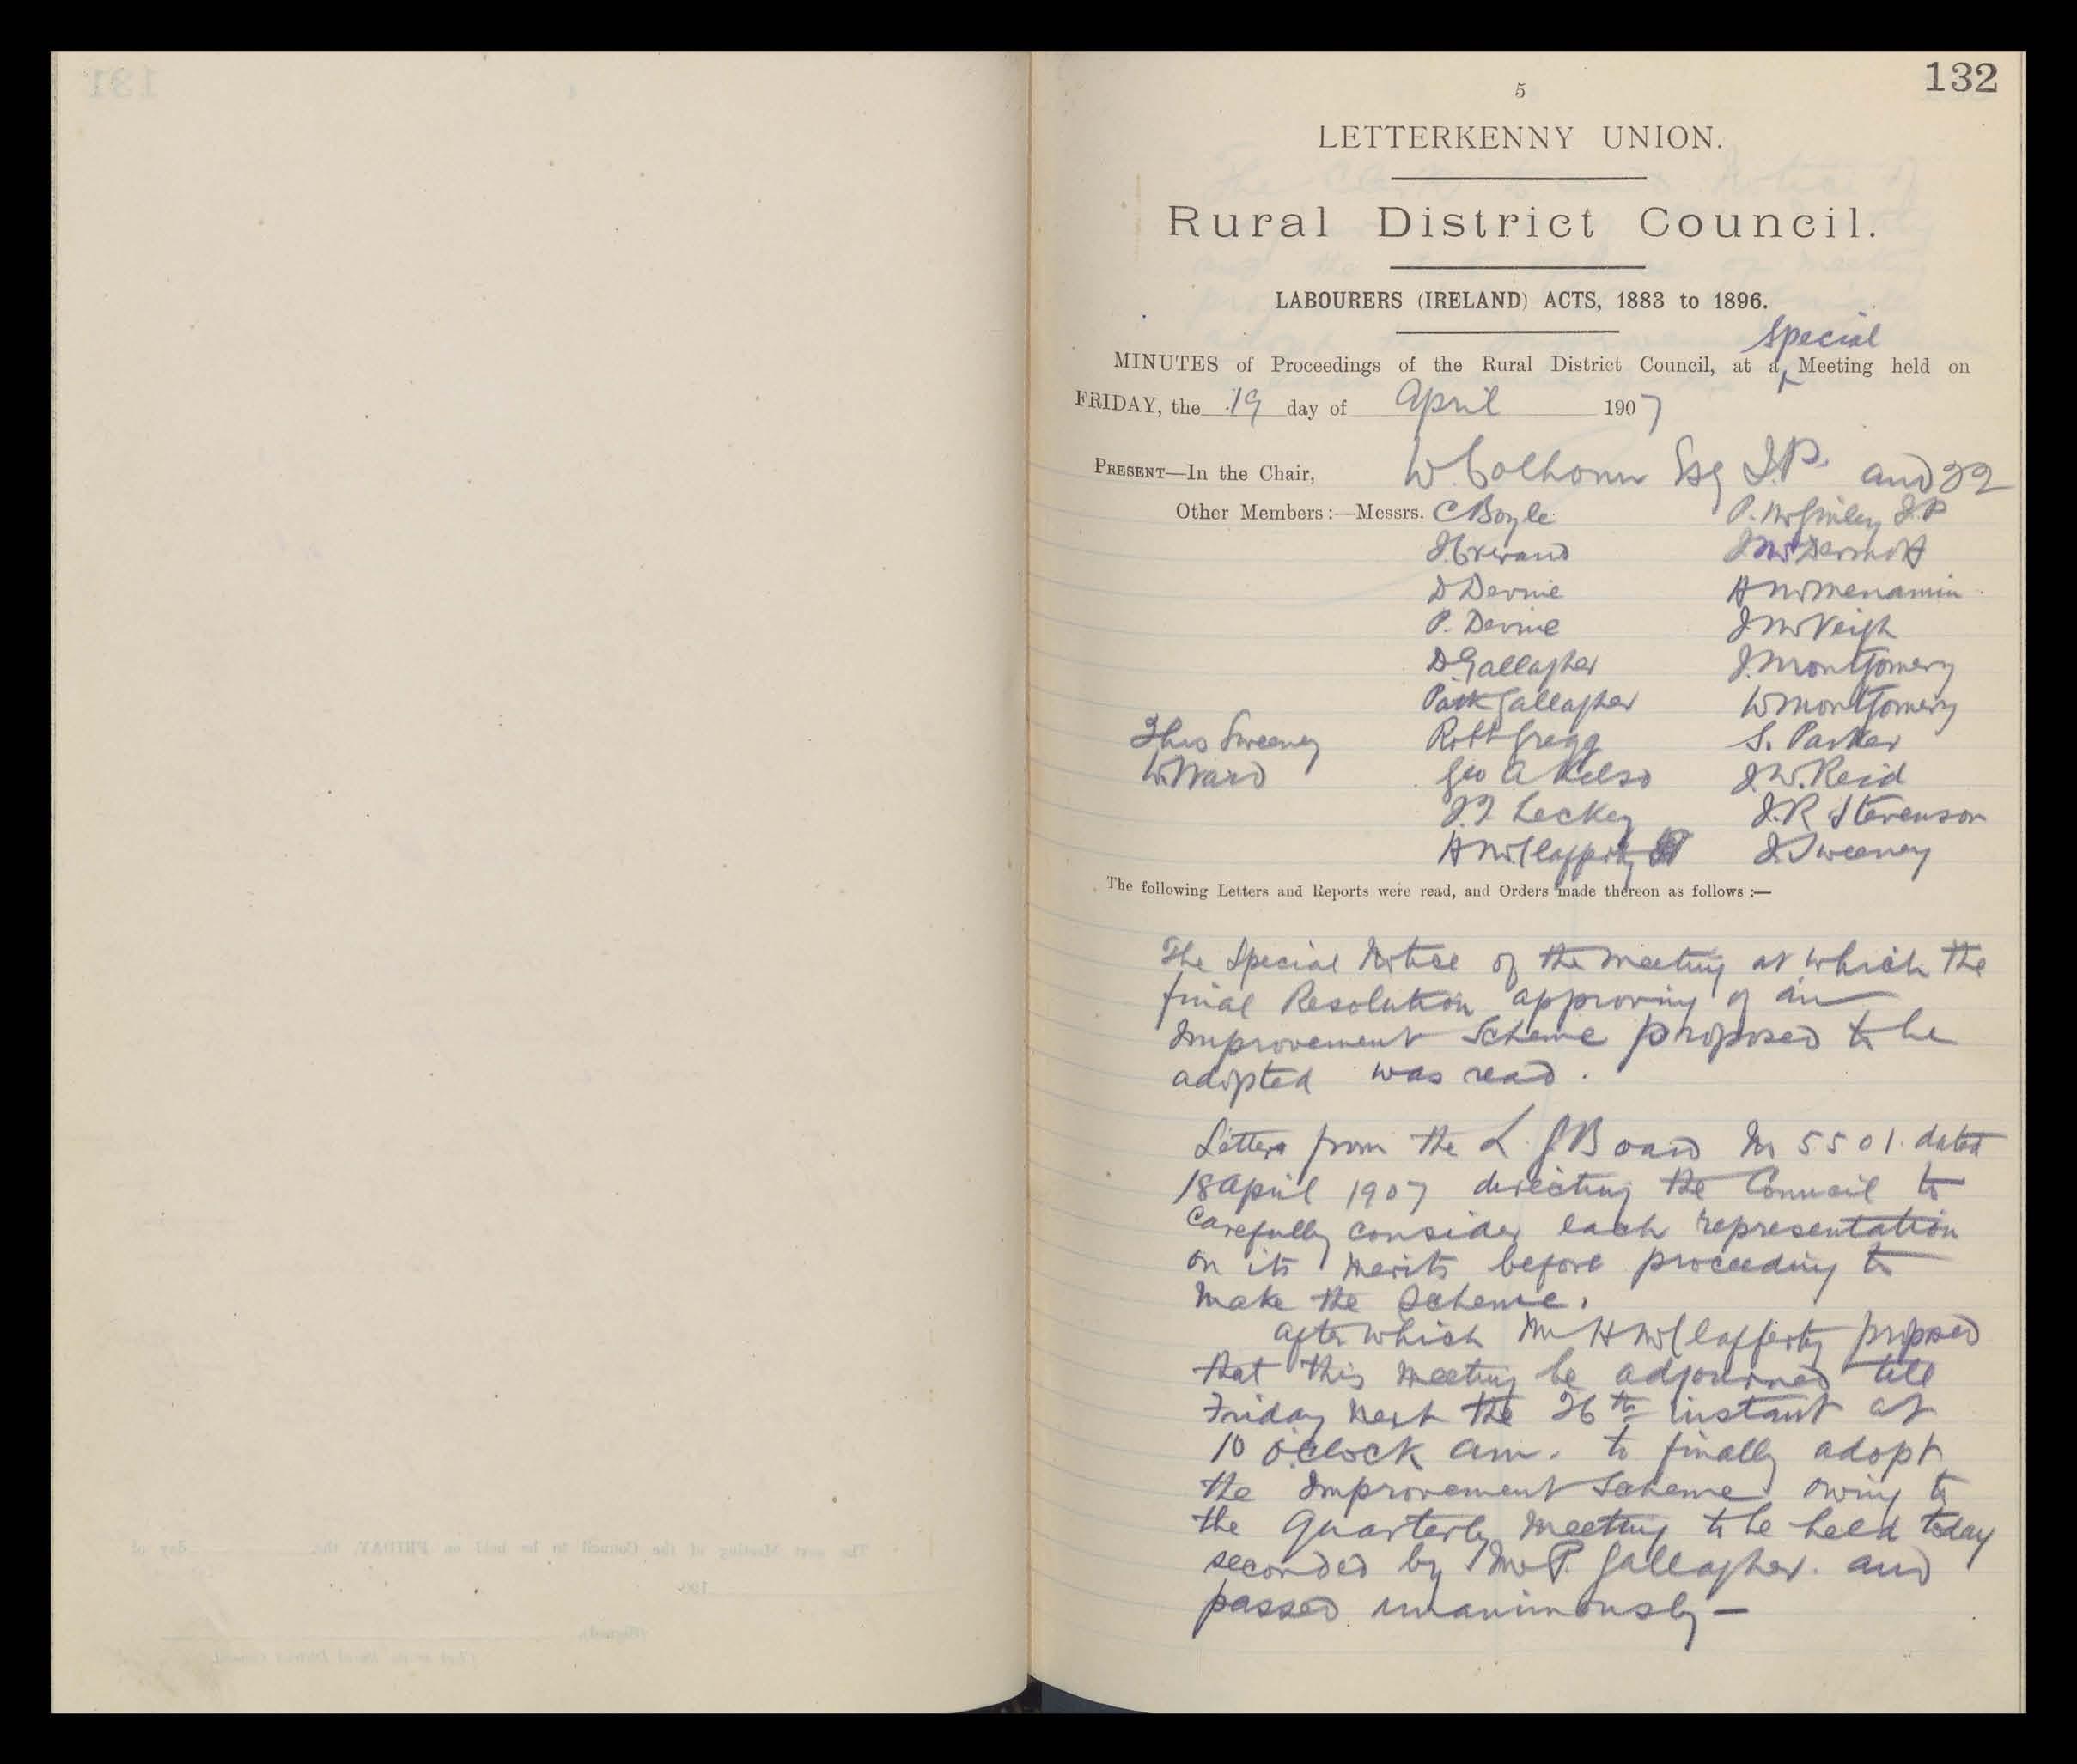 132
5
LETTERKENNY UNION.
Rural District Council.
LABOURERS (IRELAND) ACTS, 1883 to 1896.
Special
MINUTES of Proceedings of the Rural District Council, at a Meeting held on
FRIDAY, the 19 day of April 1907
PRESENT—In the Chair, W. Colhoun Esq J.P. and 22
Other Members:—Messrs. C Boyle P. McGinley J.P
J. McDermott
D Devine H McMenamin
P. Devine J McVeigh
D Gallagher J. Montgomery
Patk Gallagher W Montgomery
Thos Sweeney Robt Gregg S. Parker
W. Ward Geo A Kelso J.W. Reid
J.J. Leckey J.R Stevenson
H McClafferty J. Sweeney
The following Letters and Reports were read, and Orders made thereon as follows:—
The Special Notice of the Meeting at which the
final Resolution approving of an
Improvement Scheme proposed to be
adopted was read.
Letters from the L. G Board M 5501. dated
18 April 1907 directing the Council to
carefully consider each representation
on its merits before proceeding to
make the Scheme.
after which Mr H McClafferty proposed
that this meeting be adjourned till
Friday next the 26th instant at
10 o'clock am. to finally adopt
the Improvement Scheme owing to
the Quarterly Meeting to be held today
seconded by Mr P. Gallagher. and
passed unanimously —